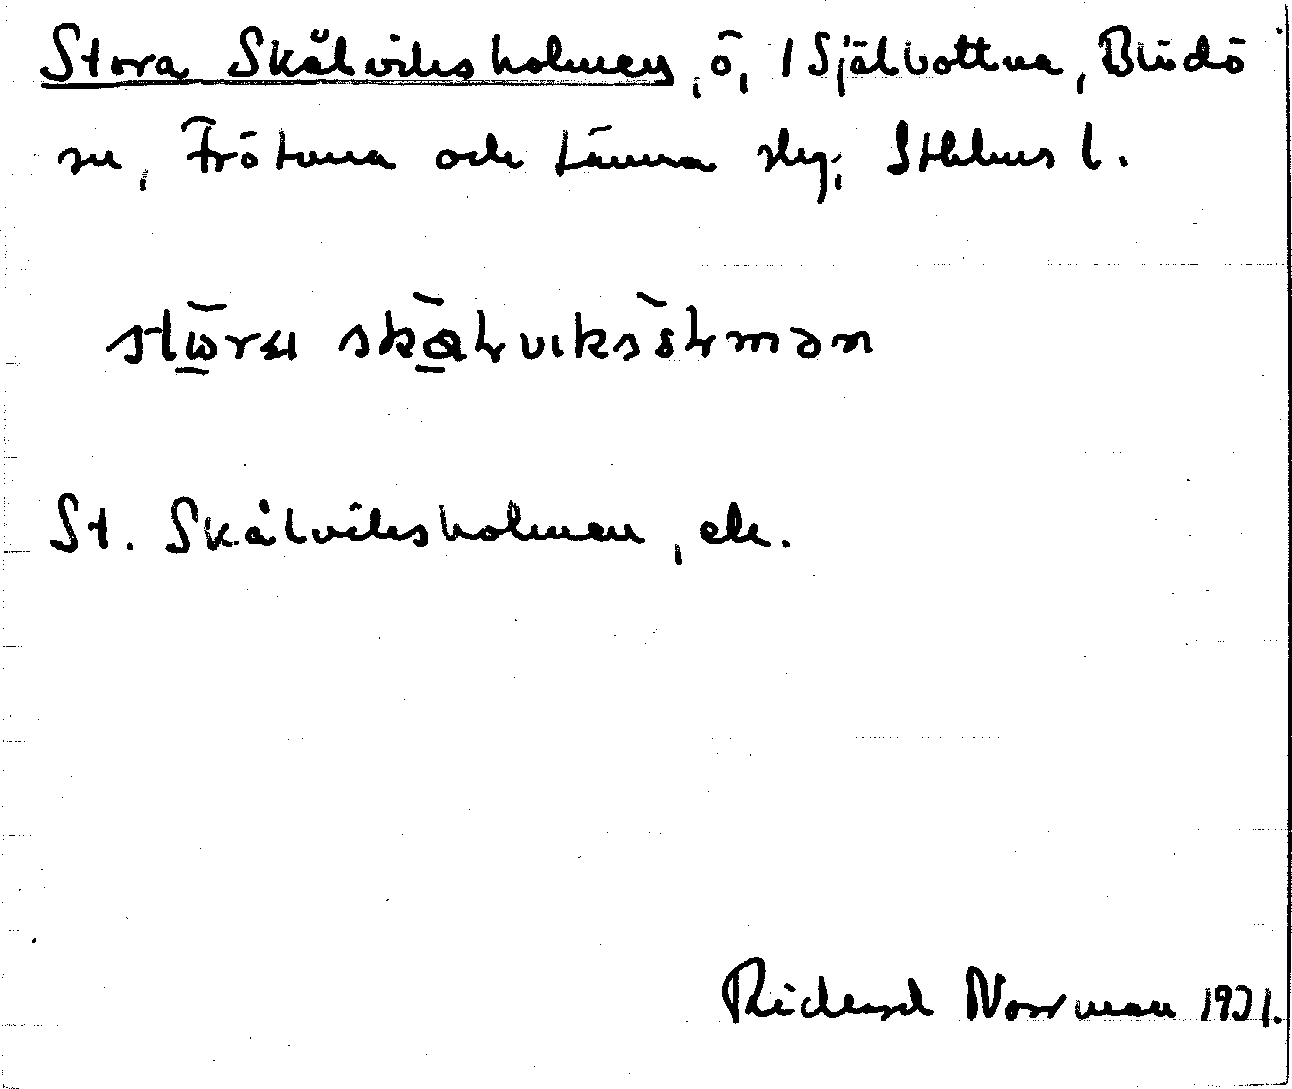 Stora Skålviksholmen, ö, 1 Själbottna, Blidö
sn, Frötuna och Länna slg, Sthlms l.
stora skålviksolmən
St. Skålviksholmen, ek.
Richard Norrman 1931.